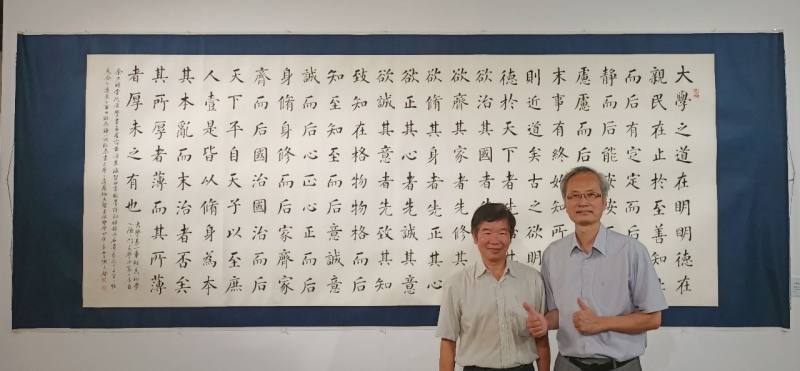 大學之道在明明德在
親民在止於至善知止
而后有定定而后
靜而后能安安
慮慮而后
末事有終始知所
則近道矣古之欲明
德於天下者先
欲治其國者先
欲齊其家者先修其
欲脩其身者先正其心
欲正其心者先誠其意
欲誠其意者先致其知
致知在格物物格而后
知至知至而后意誠意
誠而后心正心正而后
身脩身修而后家齊家
齊而后國治國治而后
天下平自天子以至庶
人壹是皆以脩身為本
其本亂而末治者否矣
其所厚者薄而其所薄
者厚未之有也